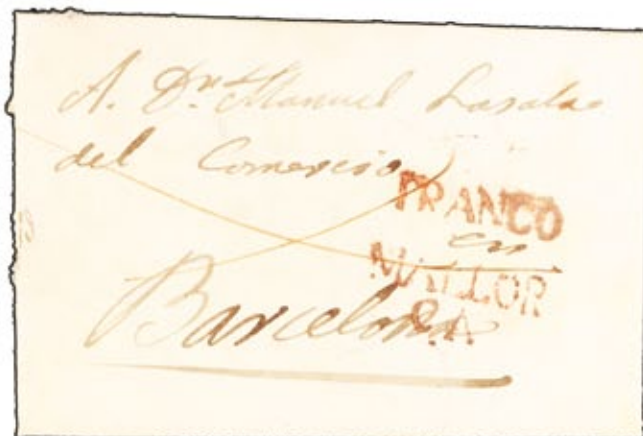 A. Dn. Manuel Lasala
del Comercio
FRANCO
en
MALLOR
CA.
Barcelona